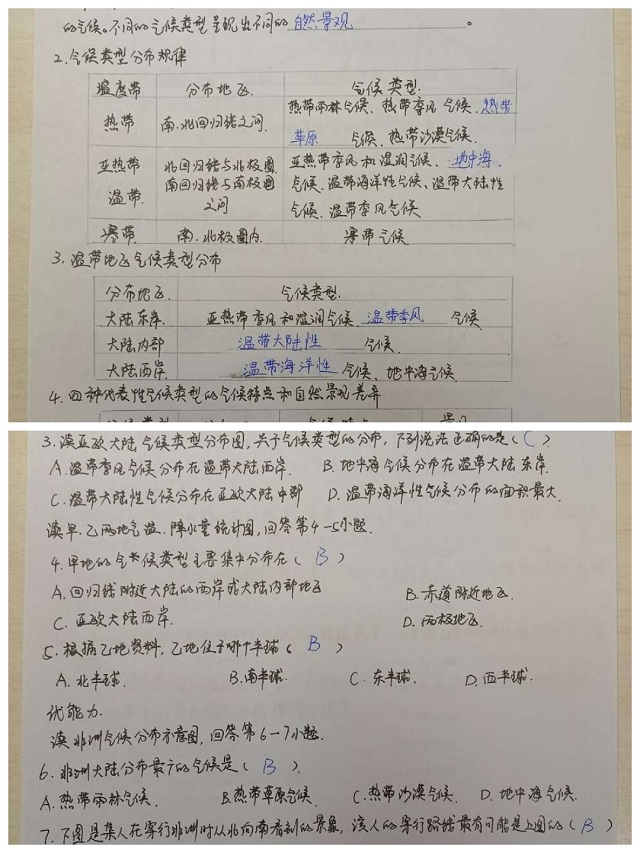 的气候。不同的气候类型呈现出不同的 自然景观 。
2.气候类型分布规律
温度带 分布地区 气候类型.
热带 南.北回归线之间. 热带雨林气候、热带季风气候、热带
草原 气候、热带沙漠气候.
亚热带 北回归线与北极圈 亚热带季风和湿润气候、地中海
温带. 南回归线与南极圈 气候、温带海洋性气候、温带大陆性
之间 气候、温带季风气候
寒带. 南.北极圈内. 寒带气候
3.温带地区气候类型分布
分布地区. 气候类型.
大陆东岸. 亚热带季风和湿润气候、温带季风 气候
大陆内部 温带大陆性 气候.
大陆西岸. 温带海洋性 气候、地中海气候.
4.四种代表性气候类型的气候特点和自然景观差异
3.读亚欧大陆气候类型分布图,关于气候类型的分布,下列说法正确的是(C)
A.温带季风气候分布在温带大陆西岸. B.地中海气候分布在温带大陆东岸.
C.温带大陆性气候分布在亚欧大陆中部 D.温带海洋性气候分布的面积最大.
读甲.乙两地气温.降水量统计图,回答第4-5小题.
4.甲地的气候类型主要集中分布在(B)
A.回归线附近大陆的西岸或大陆内部地区 B.赤道附近地区.
C.亚欧大陆西岸. D.两极地区.
5.根据乙地资料,乙地位于哪个半球(B)
A.北半球. B.南半球. C.东半球. D.西半球.
优能力.
读非洲气候分布示意图,回答第6-7小题.
6.非洲大陆分布最广的气候是(B).
A.热带雨林气候. B.热带草原气候. C.热带沙漠气候. D.地中海气候.
7.下图是某人在穿行非洲时从北向南看到的景象,该人的穿行路线最有可能是上图的(B)